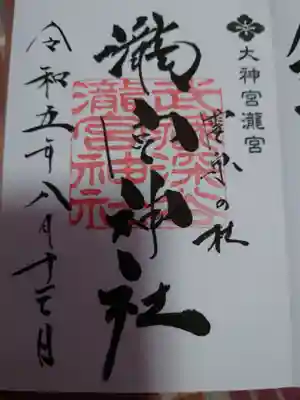 大神宮瀧宮
瀧宮神社
武蔵深谷
瀧宮神社
令和五年八月十三日